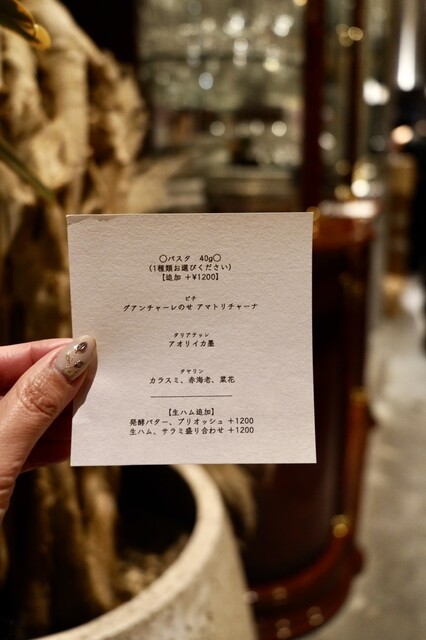 〇パスタ 40g〇
(1種類お選びください)
【追加 +¥1200】
ピチ
グアンチャーレのせ アマトリチャーナ
タリアテッレ
アオリイカ墨
タヤリン
カラスミ、赤海老、菜花
【生ハム追加】
発酵バター、ブリオッシュ +1200
生ハム、サラミ盛り合わせ +1200